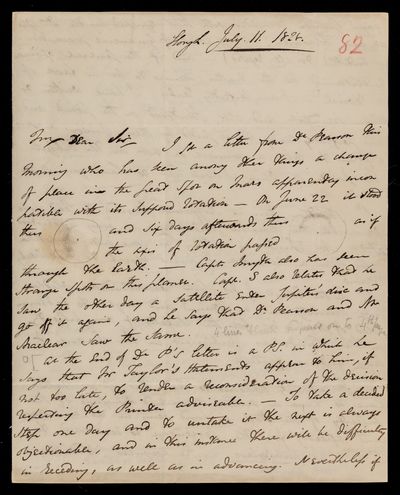 Slough. July. 11. 1828.
82
My Dear Sir I got a letter from Dr Pearson this
morning who has seen among other things a change
of place in the great spot on Mars apparently incom
patible with its supposed rotation — On June 22 it stood
thus and six days afterwards thus as if
the axis of rotation passed
through the Earth. — Capt. Smyth also has seen
strange spots on this planet. Capt. S also states that he
saw the other day a satellite enter Jupiter's disc and
go off it again, and he says that Dr Pearson and Mr
Maclear saw the same.
at the End of Dr P's letter is a P.S. in which he
says that Mr Taylor's statements appear to him, if
not too late, to render a reconsideration of the decision
respecting the Printer adviseable. — To take a decided
step one day and to untake it the next is always
objectionable, and in this instance there will be difficulty
in receding, as well as in advancing. Nevertheless if